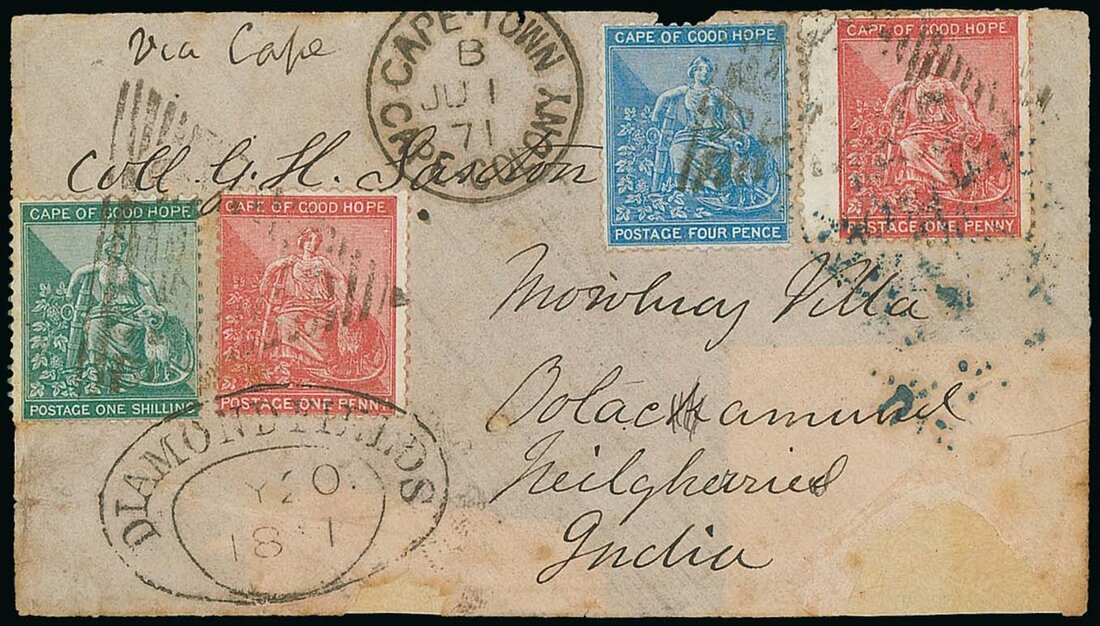 via Cape
CAPE·TOWN
B
JU 1
71
CAPE·COLONY
CAPE OF GOOD HOPE
POSTAGE FOUR PENCE
CAPE OF GOOD HOPE
POSTAGE ONE PENNY
Coll G. H. Saxton
CAPE OF GOOD HOPE
POSTAGE ONE SHILLING
CAPE OF GOOD HOPE
POSTAGE ONE PENNY
Mowbray Villa
Neilgherries
India
DIAMOND FIELDS
Y20
18 1